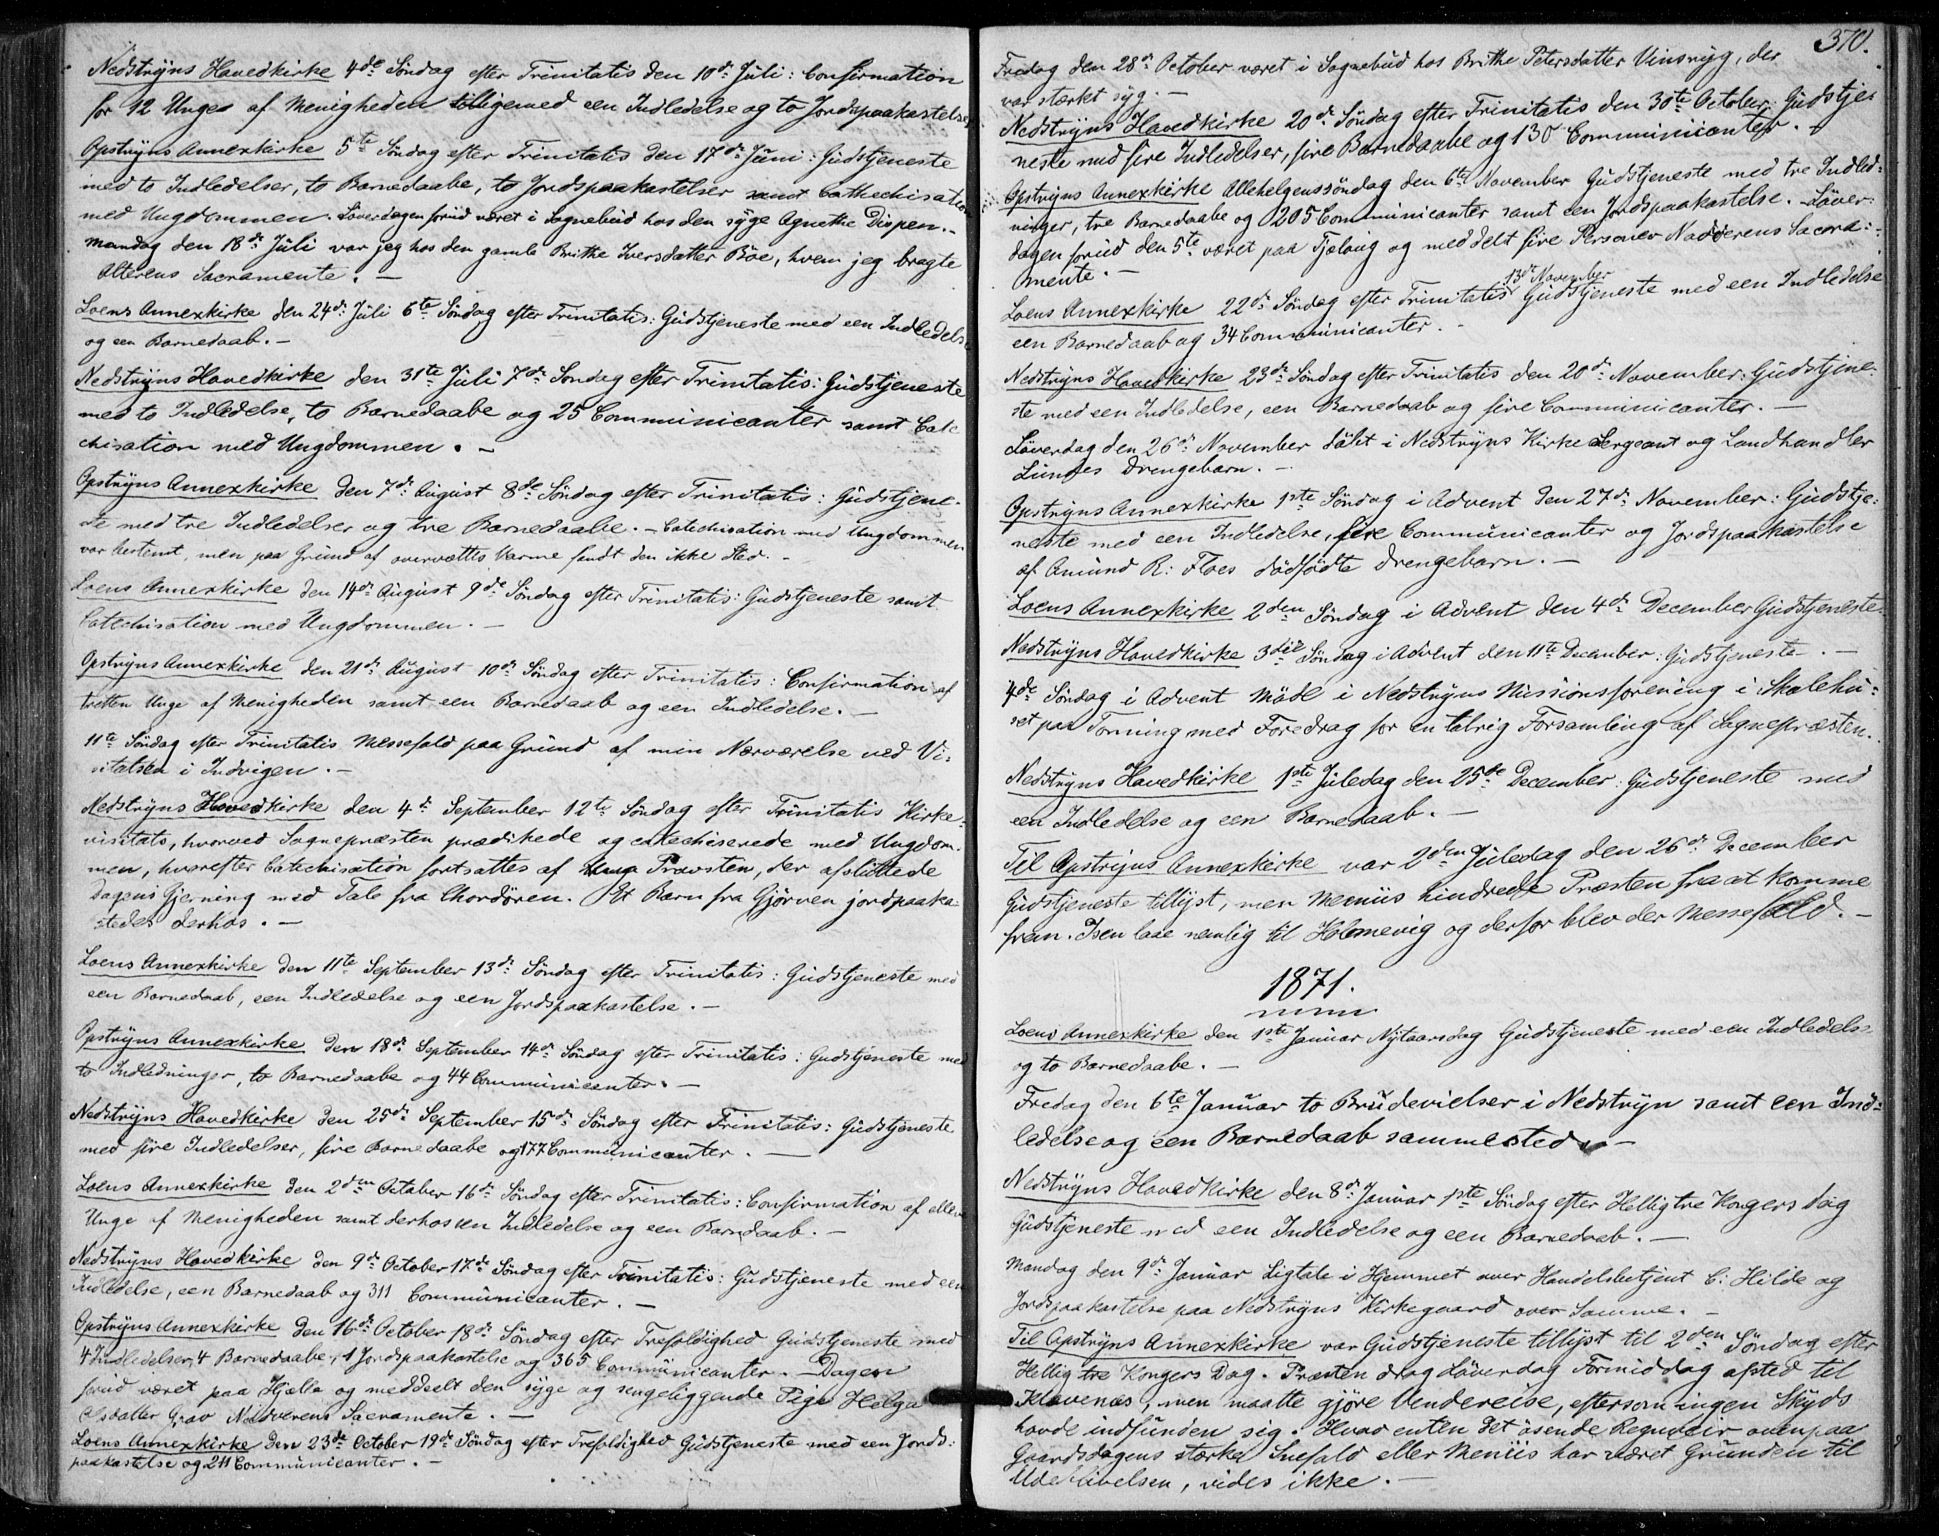 Nedstryns Hovedkirke 4de Söndag efter Trinitatis den 10de Juli: Confirmation
for 12 Unge af Menigheden tilligemed een Indledelse og to Jordspaakastelser
Opstryns Annexkirke 5te Söndag efter Trinitatis den 17de Juni: Gudstjeneste
med to Indledelser, to Barnedaabe, to Jordspaakastelser samt Cathechisation
med Ungdommen. Löverdagen forud været i Sognebud hos den syge Agnethe Dispen.-
Mandag den 18de Juli var jeg hos den gamle Brithe Iversdatter Böe, hvem jeg bragte
Alterens Sacramente. -
Loens Annexkirke den 24de Juli 6te Söndag efter Trinitatis: Gudstjeneste med een Indledelse
og een Barnedaab. -
Nedstryns Hovedkirke den 31te Juli 7de Söndag efter Trinitatis: Gudstjeneste
med to Indledelse, to Barnedaabe og 25 Communicanter samt Cate
chisation med Ungdommen. -
Opstryns Annexkirke den 7de August 8de Söndag efter Trinitatis: Gudstjene-
ste med tre Indledelser og tre Barnedaabe. - Catechisation med Ungdommen
var bestemt, men paa Grund af overvættes Varme fandt den ikke Sted. -
Loens Annexkirke den 14de August 9de Söndag efter Trinitatis: Gudstjeneste samt
Catechisation med Ungdommen. -
Opstryns Annexkirke den 21de August 10de Söndag efter Trinitatis: Confirmation af
tretten Unge af Menigheden samt een Barnedaab og een Indledelse. -
11te Söndag efter Trinitatis Messefald paa Grund af min Nærværelse ved Vi-
sitatsen i Indvigen. -
Nedstryns Hovedkirke den 4de September 12te Söndag efter Trinitatis Kirke-
visitats, hvorved Sognepræsten prædikede og catechiserede med Ungdom-
men, hvorefter Catechisation fortsattes af Provsten, der afsluttede
Dagens Gjerning med Tale fra Chordören. Et Barn fra Gjörven jordpaaka-
stedes derhos. -
Loens Annexkirke den 11te September 13de Söndag efter Trinitatis: Gudstjeneste med
een Barnedaab, een Indledelse og een Jordspaakastelse. -
Opstryns Annexkirke den 18de September 14de Söndag efter Trinitatis: Gudstjeneste med
to Indledninger, to Barnedaabe og 44 Communicanter. -
Nedstryns Hovedkirke den 25de September 15de Söndag efter Trinitatis: Gudstjeneste
med fire Indledelser, fire Barnedaabe og 177 Communicanter. -
Loens Annexkirke den 2den October 16de Söndag efter Trinitatis: Confirmation af elleve
Unge af Menigheden samt derhos een Indledelse og een Barnedaab. -
Nedstryns Hovedkirke den 9de October 17de Söndag efter Trinitatis: Gudstjeneste med een
Indledelse, een Barnedaab og 311 Communicanter. -
Opstryns Annexkirke den 16de October 18de Söndag efter Trefoldighed Gudstjeneste med
4 Indledelser, 4 Barnedaabe, 1 Jordspaakastelse og 365 Communicanter. - Dagen
forud været paa Hjelle og meddeelt den syge og sengeliggende Pige Helga
Olsdatter Grov Nadverens Sacramente. -
Loens Annexkirke den 23de October 19de Söndag efter Trefoldighed Gudstjeneste med een Jords-
paakastelse og 211 Communicanter. -
370.
Fredag den 28de October været i Sognebud hos Brithe Petersdatter Vinsryg, der
var stærkt syg. -
Nedstryns Hovedkirke 20de Söndag efter Trinitatis den 30te October: Gudstje-
neste med fire Indledelser, fire Barnedaabe og 130 Communicanter. -
Opstryns Annexkirke Allehelgenssöndag den 6te November Gudstjeneste med tre Indled-
ninger, tre Barnedaabe og 205 Communicanter samt een Jordspaakastelse. - Löver-
dagen forud den 5te været paa Fjelvig og meddelt fire Personer Nadverens Sacra-
mente. -
13de November
Loens Annexkirke 22de Söndag efter Trinitatis Gudstjeneste med een Indledelse
een Barnedaab og 34 Communicanter. -
Nedstryns Hovedkirke 23de Söndag efter Trinitatis den 20de November: Gudstjene-
ste med een Indledelse, een Barnedaab og fire Communicanter. -
Löverdag den 26de November döbt i Nedstryns Kirke Sergeant og Landhandler
Lundes Drengebarn. -
Opstryns Annexkirke 1ste Söndag i Advent den 27de November: Gudstje-
neste med een Indledelse, fire Communicanter og Jordspaakastelse
af Amund R: Floes dödfödte Drengebarn. -
Loens Annexkirke 2den Söndag i Advent den 4de December Gudstjeneste.
Nedstryns Hovedkirke 3die Söndag i Advent den 11te December: Gudstjeneste. -
4de Söndag i Advent Möde i Nedstryns Missionsforening i Skolehu-
set paa Tonning med Foredrag for en talrig Forsamling af Sognepræsten.
Nedstryns Hovedkirke 1ste Juledag den 25de December: Gudstjeneste med
een Indledelse og een Barnedaab. -
Til Opstryns Annexkirke var 2den Juledag den 26de December
Gudstjeneste tillyst, men Meniis hindrede Præsten fra at komme
frem. Isen laae nemlig til Holmevig og derfor blev der Messefald. -
1871.
Loens Annexkirke den 1ste Januar Nytaarsdag Gudstjeneste med een Indledelse
og to Barnedaabe. -
Fredag den 6te Januar to Brudevielser i Nedstryn samt een Ind-
ledelse og een Barnedaab sammested. -
Nedstryns Hovedkirke den 8de Januar 1ste Söndag efter Hellig tre Kongers Dag
Gudstjeneste med een Indledelse og een Barnedaab. -
Mandag den 9de Januar Ligtale i Hjemmet over Handelsbetjent C: Hilde og
Jordspaakastelse paa Nedstryns Kirkegaard over Samme. -
Til Opstryns Annexkirke var Gudstjeneste tillyst til 2den Söndag efter
Hellig tre Kongers Dag. Præsten drog Löverdag Formiddag afsted til
Klovenæs, men maatte gjöre Vendereise, eftersom ingen Skyds
havde indfunden sig. Hvad enten det ösende Regnveir ovenpaa
Gaarsdagens stærke Snefald eller Meniis har været Grunden til
Udeblivelsen, vides ikke. -